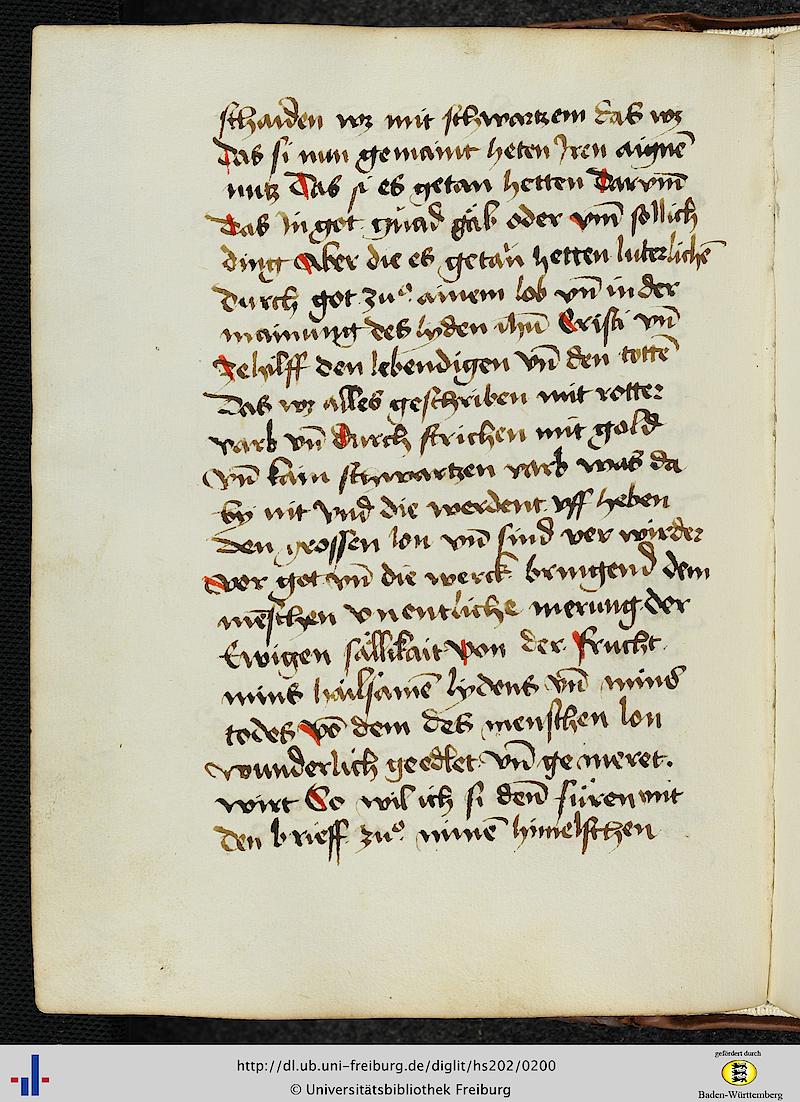 schaiden wz mit schwartzem das wz
das si nun gemaint heten Jren aignē
nutz Das si es getan hetten Darvm̄
Das jn got gnad gäb oder vm̄ sollich
ding Aber die es getan hetten luterlichē
durch got zuͦ ainem lob vn̄ in der
mainung des lyden ihū Cristi vn̄
Zehilff den lebendigen vn̄ den tottē
Das wz alles geschriben mit rotter
varb vn̄ durch strichen mit gold
vn̄ kain schwartzen varb was da
by nit vnd die werdent vff heben
den grossen lon vn̄ sind ver wirder
vor got vn̄ die werck bringend dem
mēschen vnentliche merung der
Ewigen sällikait von der frucht
mins hailsamē lydens vn̄ mins
todes vō dem des menschen lon
wunderlich geedlet vn̄ ge meret.
wirt So wil ich si den̄ füren mit
den brieff zuͦ minē himelschen
http://dl.ub.uni-freiburg.de/diglit/hs202/0200
© Universitätsbibliothek Freiburg
gefördert durch
Baden-Württemberg